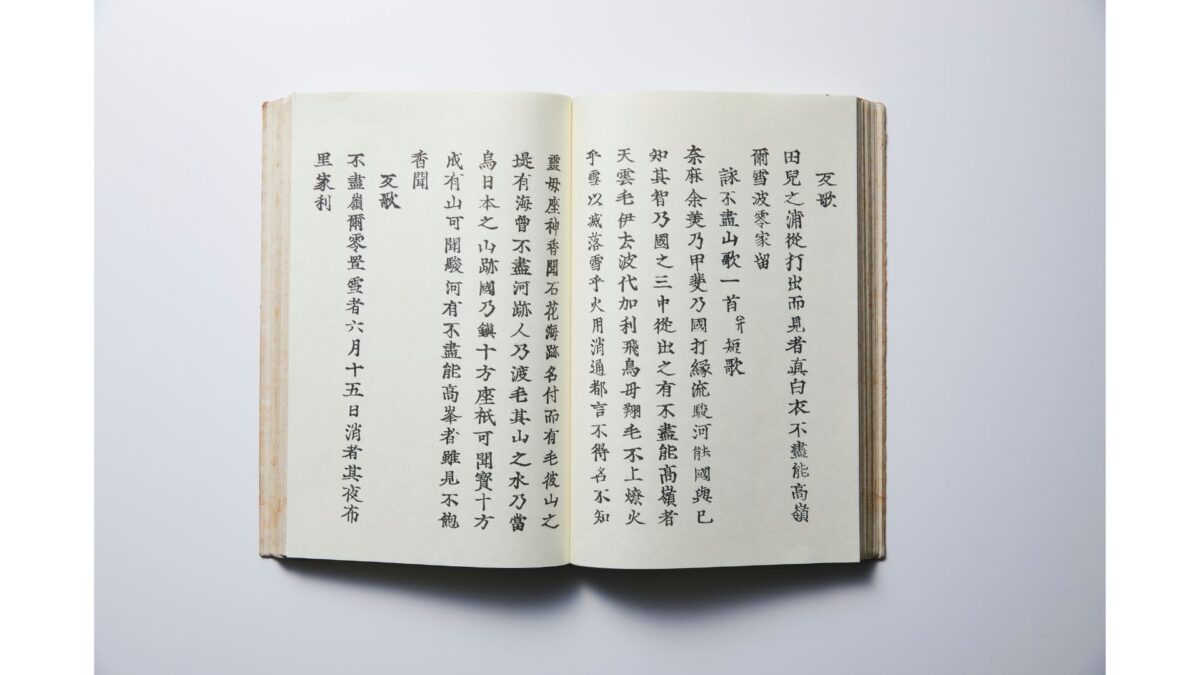 反歌
田兒之浦從打出而見者真白衣不盡能高嶺
爾雪波零家留
詠不盡山歌一首 并短歌
奈麻余美乃甲斐乃國打縁流駿河能國與己
知其智乃國之三中從出之有不盡能高嶺者
天雲毛伊去波代加利飛鳥母翔毛不上燎火
乎雪以滅落雪乎火用消通都言不得名不知
靈母座神香聞石花海跡名付而有毛彼山之
堤有海曾不盡河跡人乃渡毛其山之水乃當
烏日本之山跡國乃鎮十方座祇可聞寳十方
成有山可聞駿河有不盡能高峯者雖見不飽
香聞
反歌
不盡嶺爾零置雪者六月十五日消者其夜布
里家利